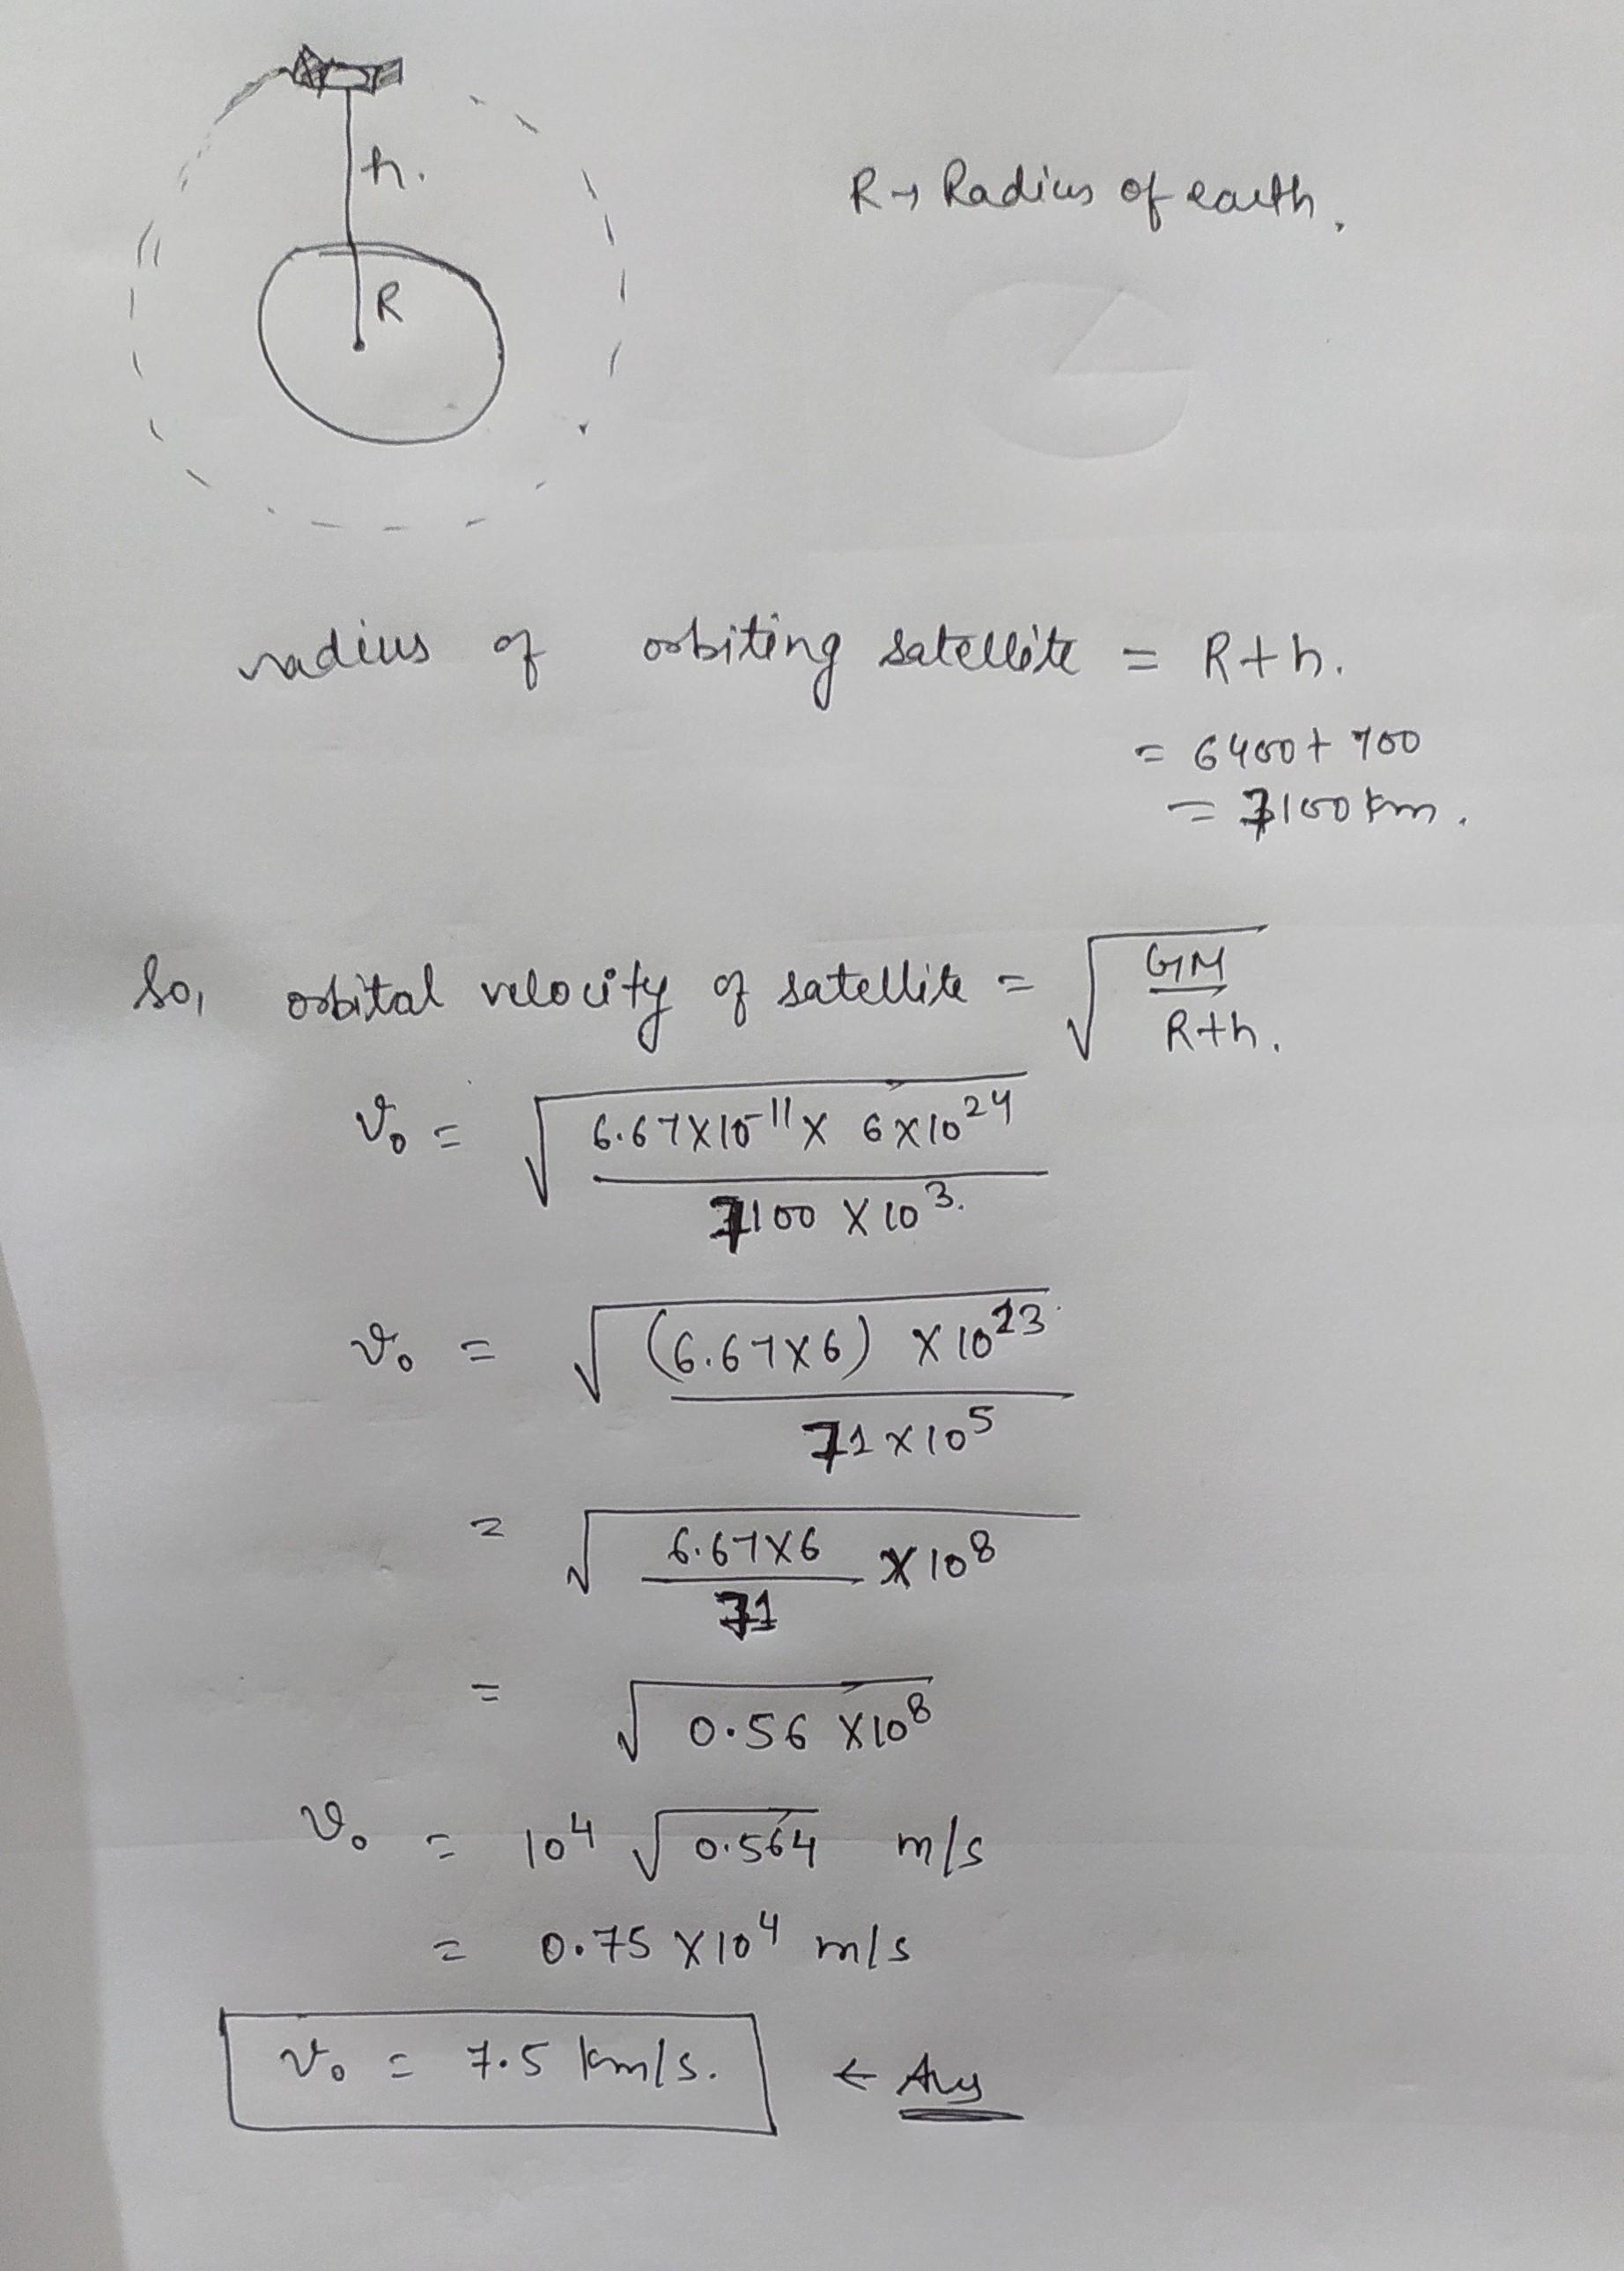 h.
R → Radius of earth.
R
radius of orbiting satellite = R+h.
= 6400 + 700
= 7100 km.
So, orbital velocity of satellite = √(GM/R+h.)
v₀ = √(6.67×10⁻¹¹ × 6×10²⁴ / 7100 × 10³.)
v₀ = √((6.67×6) × 10¹³ / 71×10⁵)
= √(6.67×6/71 × 10⁸)
= √(0.56 × 10⁸)
v₀ = 10⁴ √0.564 m/s
= 0.75 × 10⁴ m/s
v₀ = 7.5 km/s. ← Ans